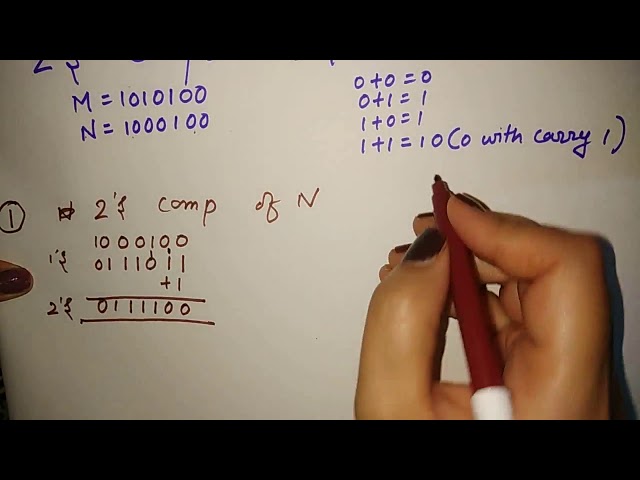 M = 1010100
N = 1000100
0+0=0
0+1=1
1+0=1
1+1=10 (0 with carry 1)
① 2's comp of N
1000100
1's 0111011
+1
2's 0111100